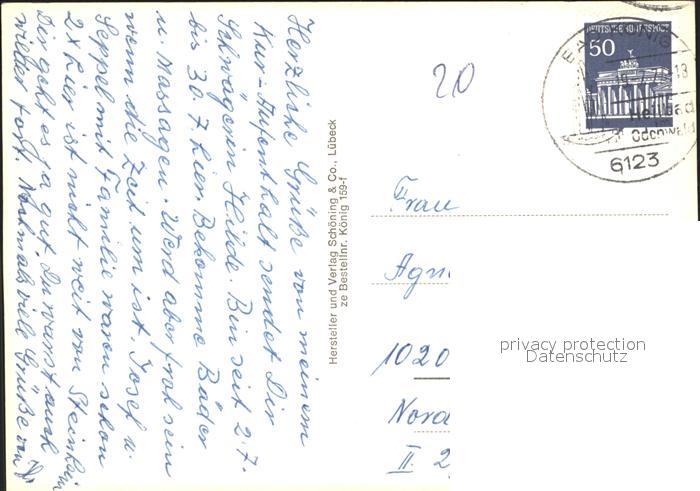 Herzliche Grüße von meinem
Kur-Aufenthalt sendet Dir
Schwägerin Hilde. Bin seit 2.7.
bis 30.7. hier. Bekomme Bäder
u. Massagen. Werd aber froh sein
wenn die Zeit um ist. Josef u.
Seppel mit Familie waren schon
2x hier ist nicht weit von Steinheim
Dir geht es ja gut. Du warst auch
wieder fort. Nochmals viele Grüße von
Hersteller und Verlag Schöning & Co., Lübeck
ze Bestellnr. König 159-f
20
DEUTSCHE BUNDESPOST
50
KÖNIG
-18
Heilbad
Odenwald
6123
Frau
Agn
1020
Nord
II. 2
privacy protection
Datenschutz